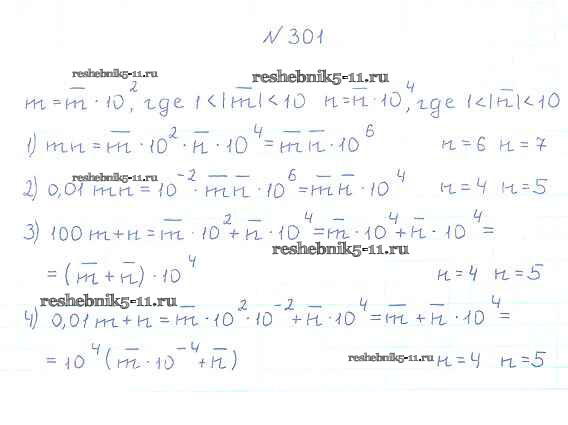 № 301
reshebnik5-11.ru reshebnik5-11.ru
m = m̅ · 10², где 1<|m̅|<10 n = n̅ · 10⁴, где 1<|n̅|<10
1) mn = m̅ · 10² · n̅ · 10⁴ = m̅ n̅ · 10⁶ n=6 n=7
reshebnik5-11.ru
2) 0,01 mn = 10⁻² · m̅ n̅ · 10⁶ = m̅ n̅ · 10⁴ n=4 n=5
3) 100 m + n = m̅ · 10² + n̅ · 10⁴ = m̅ · 10⁴ + n̅ · 10⁴ =
reshebnik5-11.ru
= (m̅ + n̅) · 10⁴ n=4 n=5
reshebnik5-11.ru
4) 0,01 m + n = m̅ · 10² · 10⁻² + n̅ · 10⁴ = m̅ + n̅ · 10⁴ =
= 10⁴ (m̅ · 10⁻⁴ + n̅) reshebnik5-11.ru n=4 n=5